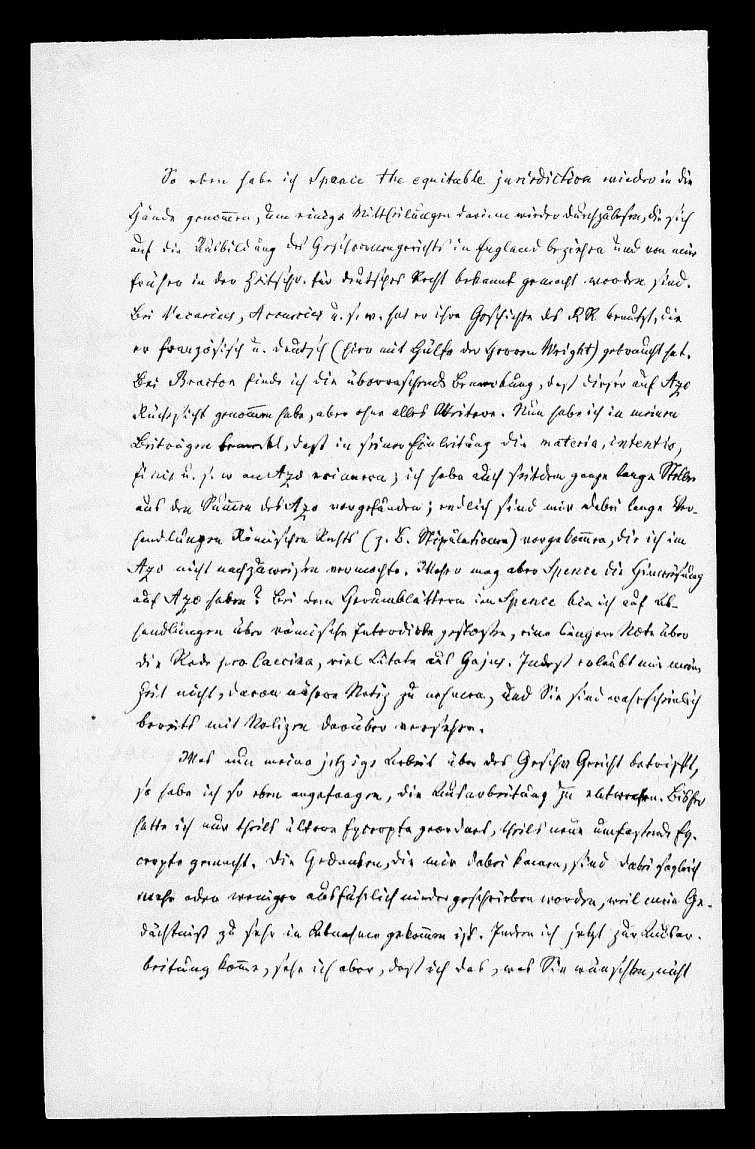 So eben habe ich Spence the equitable jurisdiction wieder in die
Hände genommen, um einige Mittheilungen darin wieder durchzulesen, die sich
auf die Ausbildung des Geschwornengerichts in England beziehen und von mir
früher in der Zeitschr. für deutsches Recht bekannt gemacht worden sind.
Bei Vacarius, Accursius u. s. w. hat er ihre Geschichte des RR. benutzt, die
er französisch u. deutsch (hier mit Hülfe des Herrn Wright) gebraucht hat.
Bei Bracton finde ich die überraschende Bemerkung, daß dieser auf Azo
Rücksicht genommen habe, aber ohne alles Weitere. Nun habe ich in meinen
Beiträgen bemerkt, daß in seiner Einleitung die materia, intentio,
finis u. s. w an Azo erinnern; ich habe auch seitdem ganze lange Stellen
aus den Summen des Azo vorgefunden; endlich sind mir dabei lange Ver-
handlungen Römischen Rechts (z. B. Stipulationen) vorgekommen, die ich im
Azo nicht nachzuweisen vermochte. Woher mag aber Spence die Hinweisung
auf Azo haben? Bei dem Herumblättern im Spence bin ich auf Ab-
handlungen über römische Interdicte gestoßen, eine längere Note über
die Rede pro Caecina, viel Citate aus Gajus. Indeß erlaubt mir meine
Zeit nicht, davon nähere Notiz zu nehmen, und Sie sind wahrscheinlich
bereits mit Notizen darüber versehen.
Was nun meine jetzige Arbeit über das Geschw Gericht betrifft,
so habe ich so eben angefangen, die Ausarbeitung zu entwerfen. Bisher
hatte ich nur theils ältere Excerpte geordnet, theils neue umfassende Ex-
cerpte gemacht. Die Gedanken, die mir dabei kamen, sind dabei sogleich
mehr oder weniger ausführlich niedergeschrieben worden, weil mein Ge-
dächtniß zu sehr in Abnahme gekommen ist. Indem ich jetzt zur Ausar-
beitung komme, sehe ich aber, daß ich das, was Sie wünschten, nicht